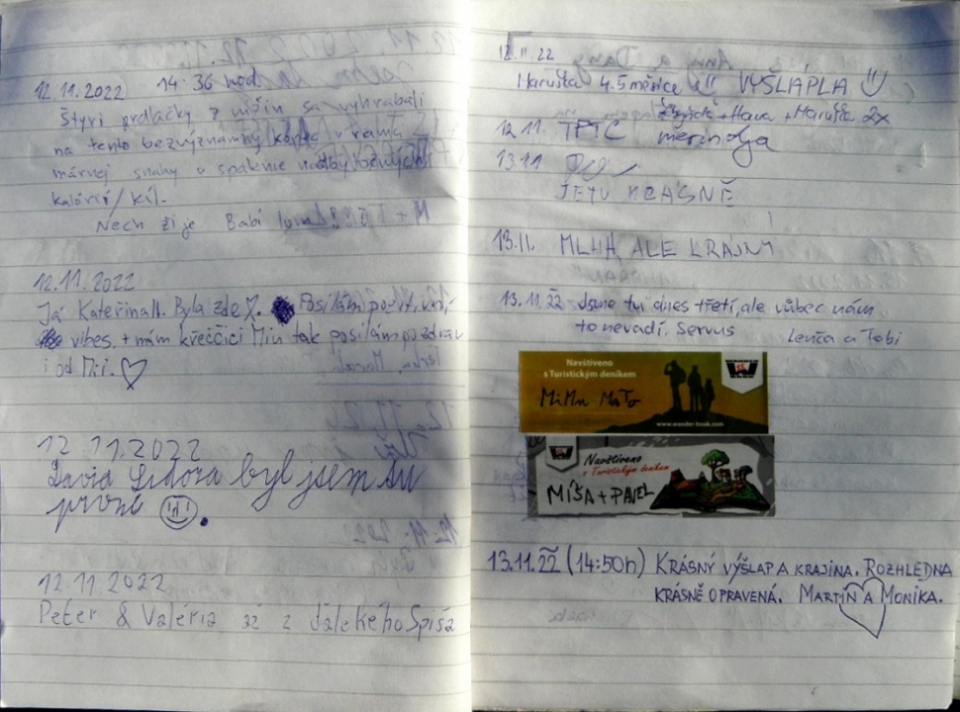 12.11.2022 14:36 hod.
Štyri prdláčky z nížin sa vyhrabali
na tento bezvýznamný kopec v rámci
márnej snahy o spálenie
kalórií/kíl.
Nech žije Babí
12.11.2022
Já Kateřina II. Byla zde. Posílám pozitivní
vibes, + mám křeččici Miri tak posílám pozdrav
i od Miri. ♡
12 11.2022
David byl jsem tu
prvně
12.11.2022
Peter & Valéria až z ďalekého Spiša
12.11.22
Haruška 4.5 měsíce VYŠLÁPLA
+ Hava + Haruška 2x
12.11. TPTC
13.11
JE TU KRÁSNĚ
13.11. MLHA, ALE KRÁJNÝ
13.11.22 Jsme tu dnes třetí, ale vůbec nám
to nevadí. Servus Lenča a Tobi
Navštíveno
s Turistickým deníkem
MiMn MaTo
www.wander-book.com
Navštíveno
s Turistickým deníkem
MÍŠA + PAVEL
13.11.22 (14:50h) KRÁSNÝ VÝŠLAP A KRAJINA. ROZHLEDNA
KRÁSNĚ OPRAVENÁ. MARTIN A MONIKA.